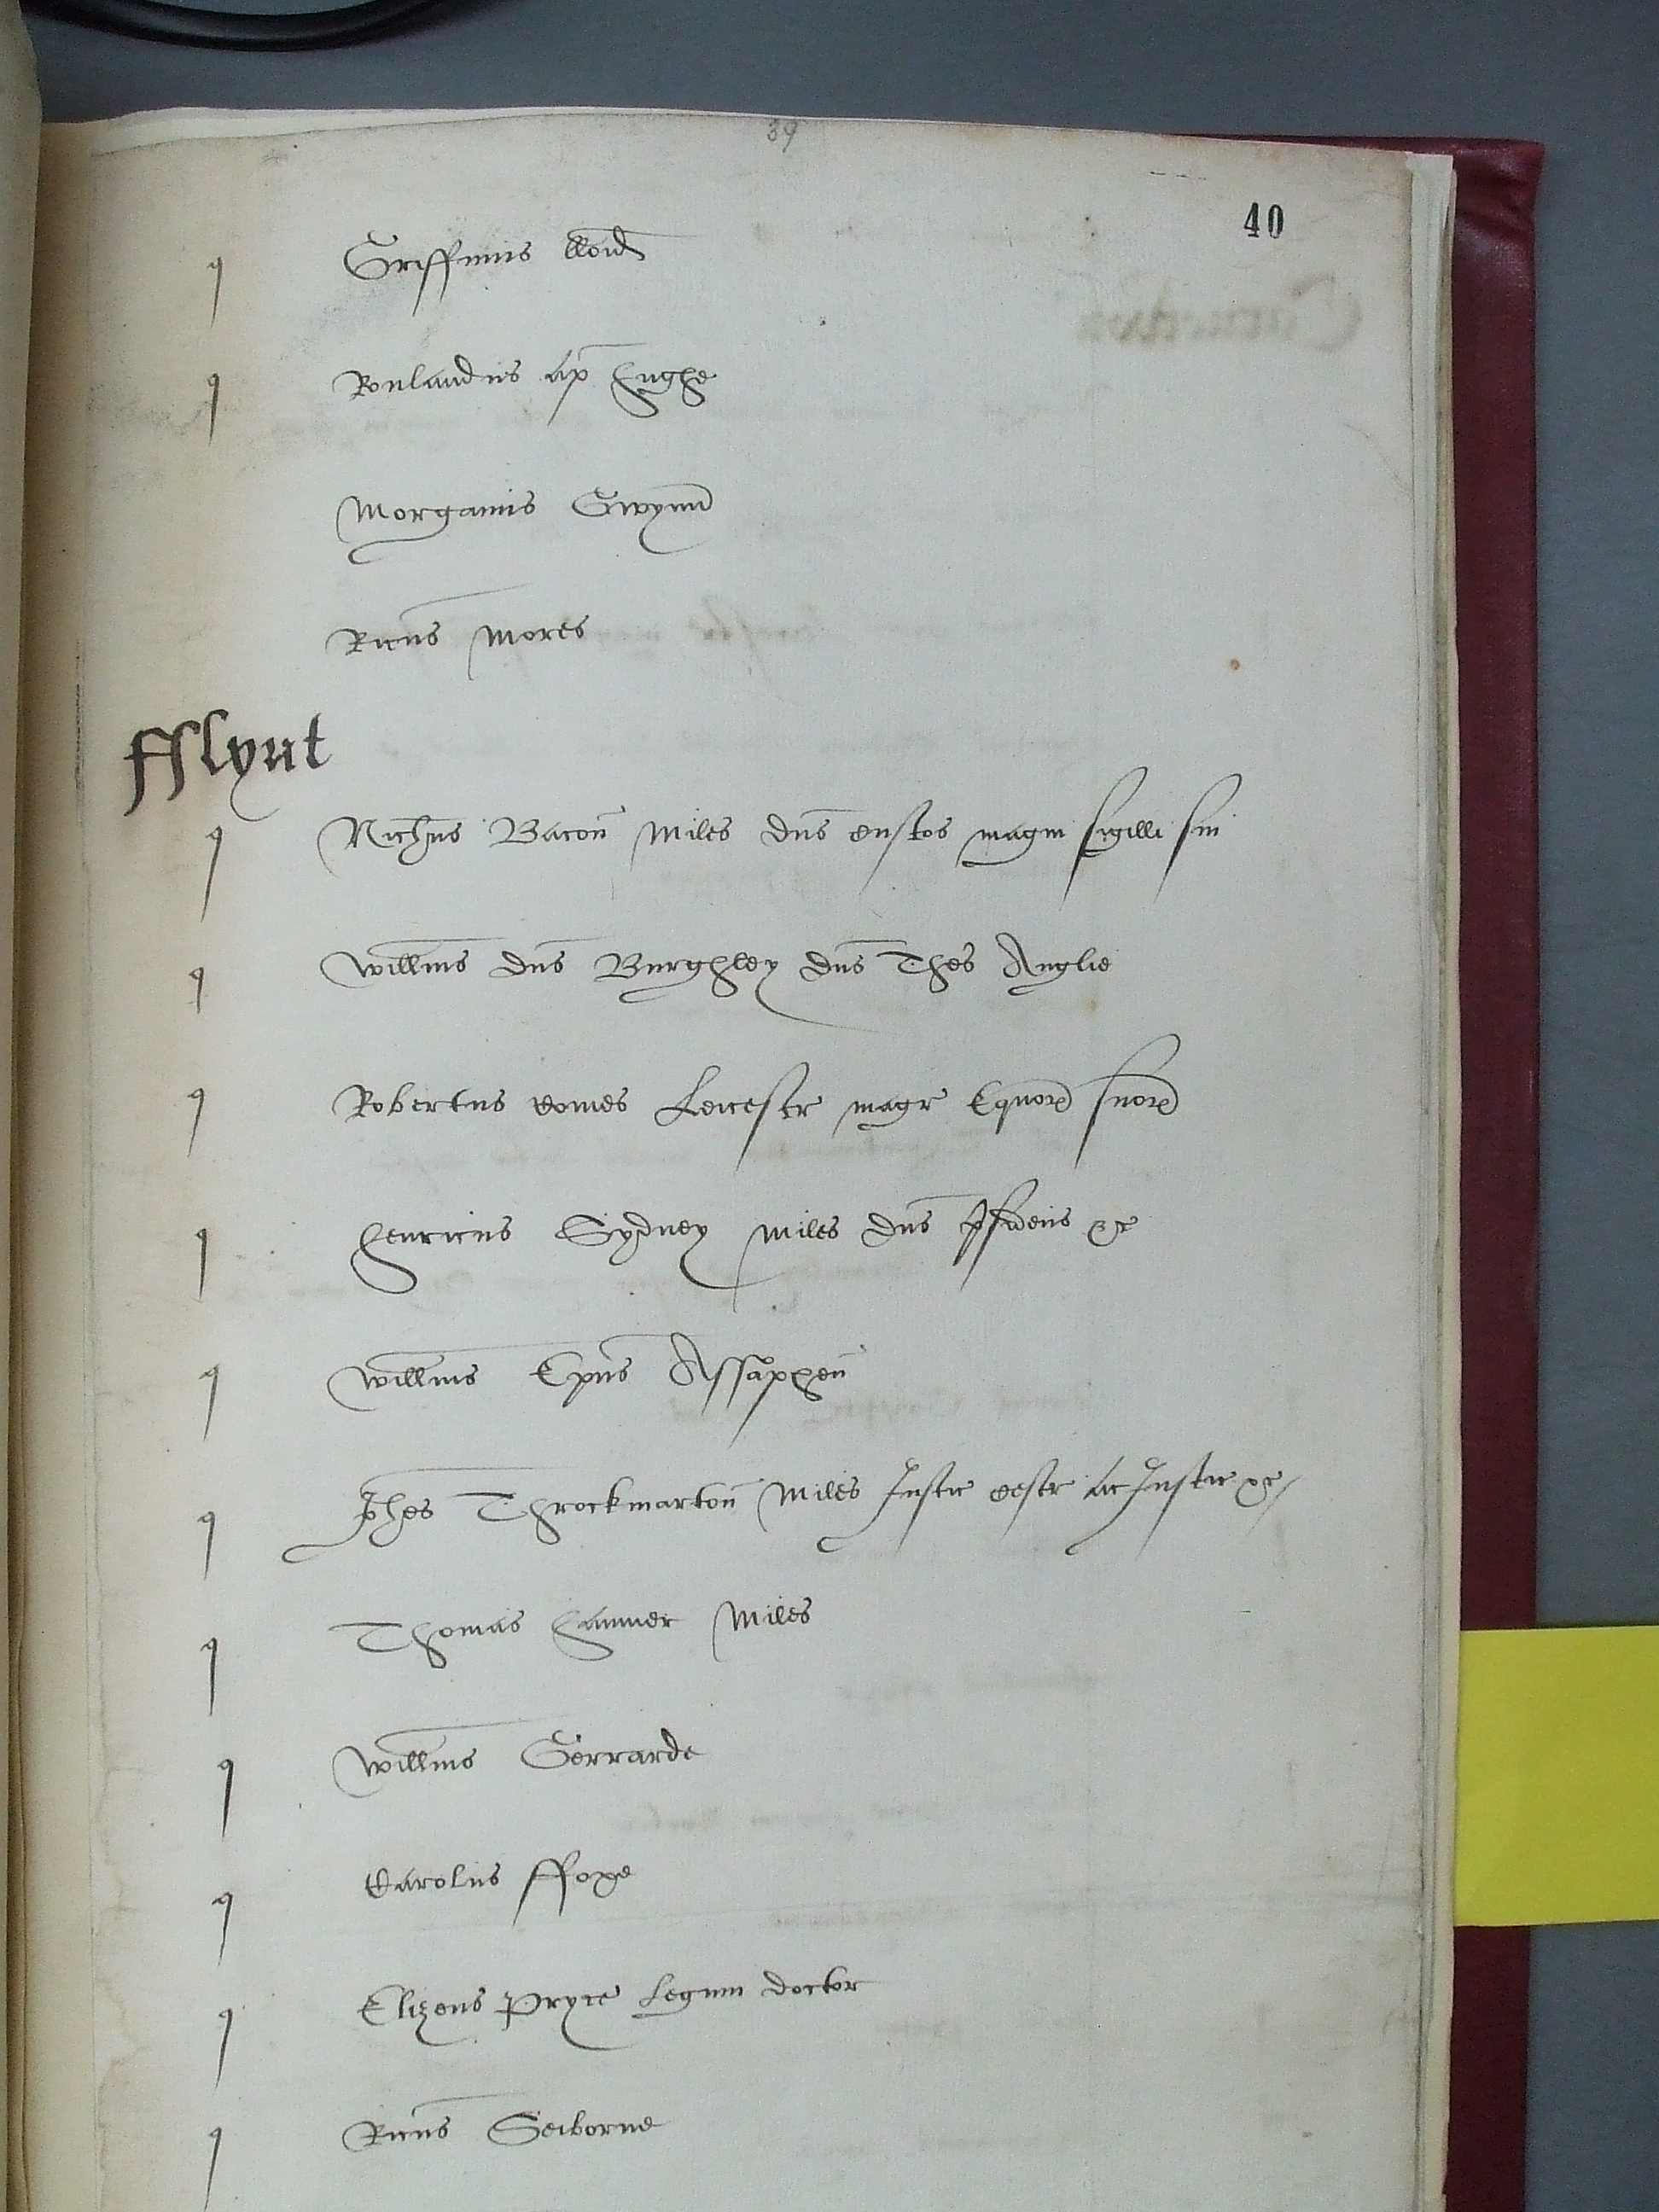 39
40
q Griffinus lloid
q Roulandus ap hughe
Morganus Gwynn
Ricus Mores
fflynt
q Nichus Bacon Miles dns Custos magni sigilli sui
q Willms dns Burghley dns Thes Anglie
q Robertus Comes Leicestr magr Equor suor
q Henricus Sydney Miles dns Psidens &c
q Willms Epus Assaphen
q Johes Throckmarton Miles Justic Cestr ac Justic &c
q Thomas Hanmer Miles
q Willms Gerrarde
q Carolus ffoxe
q Elizeus Pryce Legum doctor
q Ricus Seborne